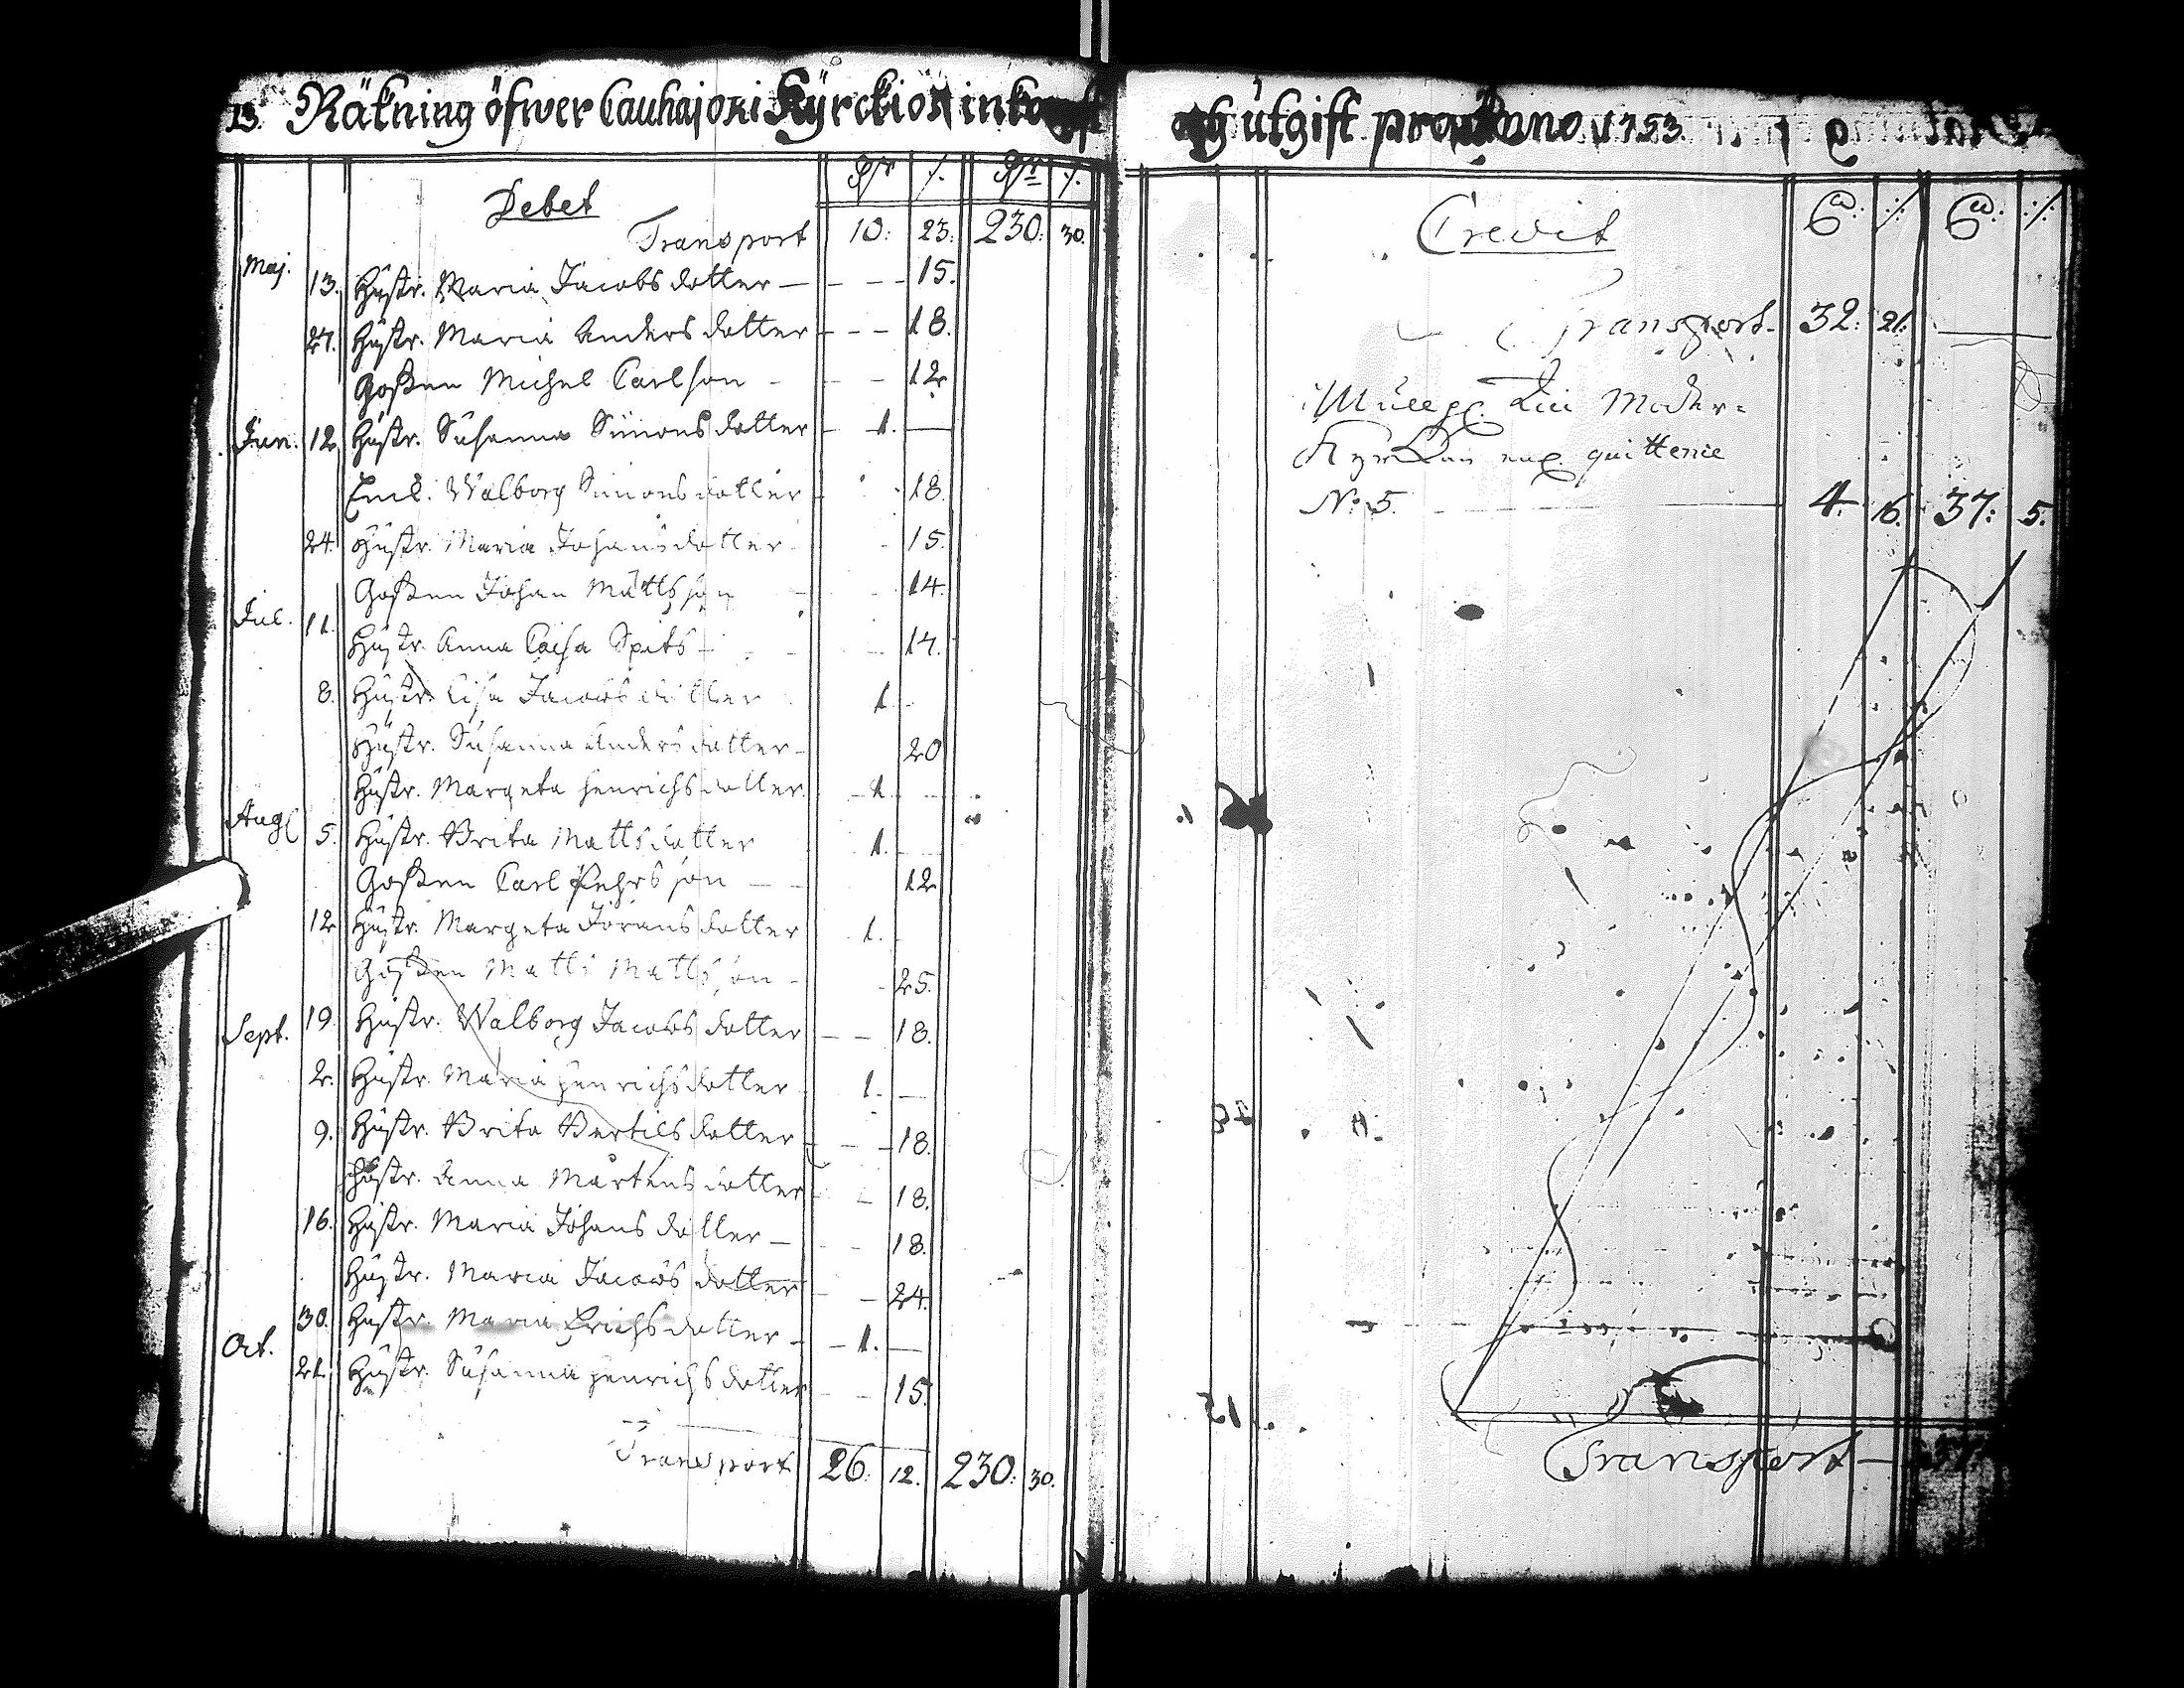 13. Räkning öfwer Cauhajoki Kyrckios inkomst
Debet
Transport 10: 23: 230: 30.
Maj. 13. Hustr. Maria Jacobsdotter — 15.
27. Hustr. Maria Andersdotter — 18.
Gossen Michel Carlson — 12
Jun. 12 Hustr. Susanna Simonsdotter 1. —
Encl. Walborg Simonsdotter 18.
24. Hustr. Maria Johansdotter 15.
Gossen Johan Mattsson 14.
Jul. 11. Hustr. Anna Caisa Spits 14.
8. Hustr. Lisa Jacobsdotter 1.
Hustr. Susanna Andersdotter 20
Hustr. Margeta Henrichsdotter 1.
Aug 5. Hustr. Brita Mattsdotter 1.
Gossen Carl Pehrsson — 12
12 Hustr. Margeta Jöransdotter 1.
Gossen Matts Mattsson 25.
19. Hustr. Walborg Jacobsdotter 18.
Sept. 2. Hustr. Maria Henrichsdotter 1. —
9. Hustr. Brita Bertilsdotter 18.
Hustr. Anna Mårtensdotter 18.
16. Hustr. Maria Johansdotter 18.
Hustr. Maria Jacobsdotter 24.
30. Hustr. Maria Erichsdotter 1. —
Oct. 21. Hustr. Susanna Henrichsdotter 15.
Transport 26: 12. 230: 30.
och utgift pro Anno 1753.
Credit
Transport 32: 21. —
Moder=
Kyrckan quittence
No: 5. 4. 16. 37: 5.
Transport —